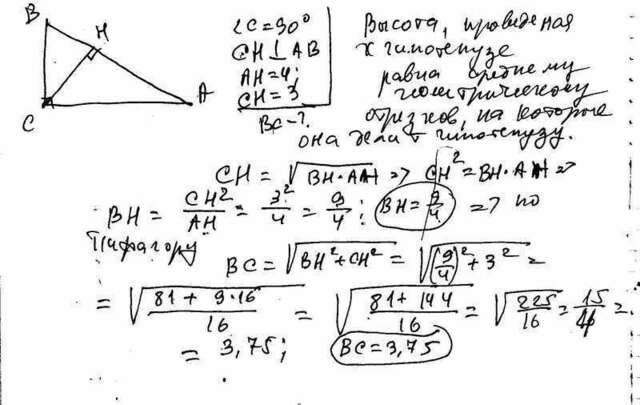 B
H
C
A
∠C=90°
CH⊥AB
AH=4;
CH=3
BC-?
Высота, проведеная
к гипотенузе
равна среднему
геометрическому
отрезков, на которые
она делит гипотенузу.
CH = √(BH·AH) => CH² = BH·AH =>
BH = CH²/AH = 3²/4 = 9/4; BH = 9/4 => по
Пифагору
BC = √(BH²+CH²) = √((9/4)²+3²) =
= √((81+9·16)/16) = √((81+144)/16) = √(225/16) = 15/4 =
= 3,75; BC=3,75